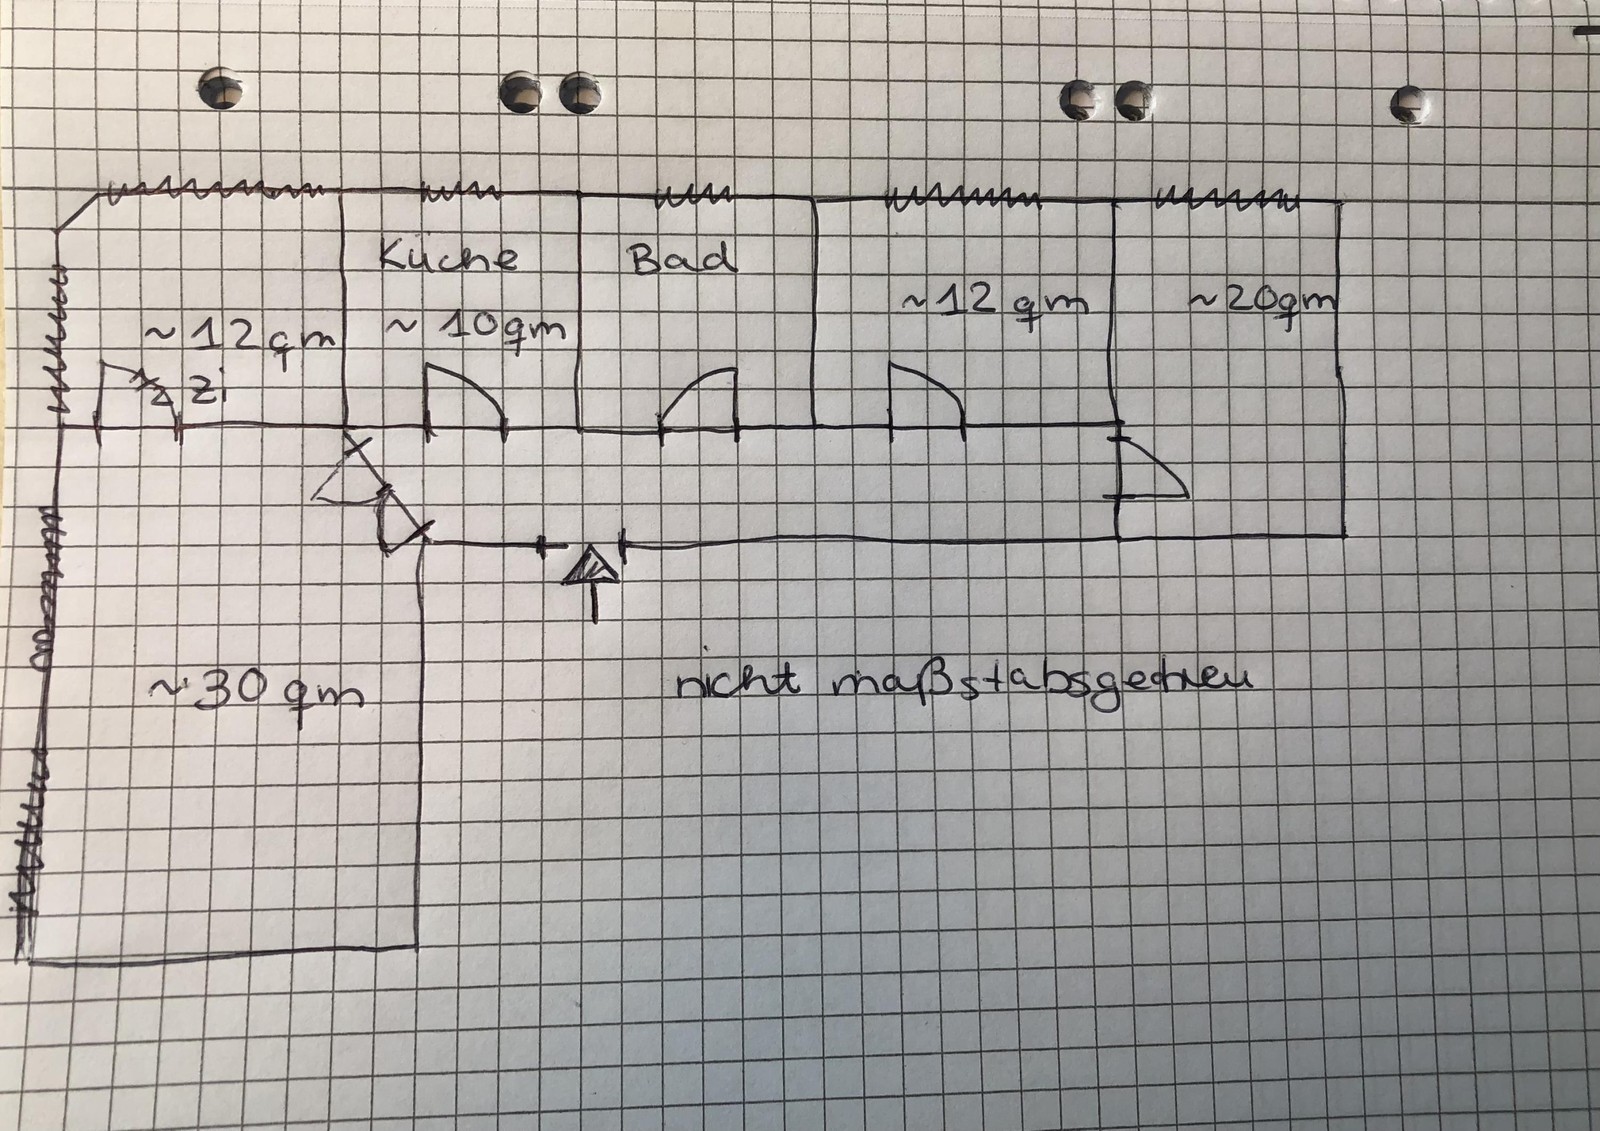 Küche
Bad
~12 qm
~20qm
~12 qm
~ 10qm
zi
~30 qm
nicht maßstabsgetreu